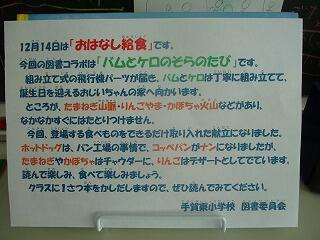 12月14日は「おはなし給食」です。
今回の図書コラボは「バムとケロのそらのたび」です。
組み立て式の飛行機パーツが届き、バムとケロは丁寧に組み立てて、
誕生日を迎えるおじいちゃんの家へ向かいます。
ところが、たまねぎ山脈・りんごやま・かぼちゃ火山などがあり、
なかなかすぐにはたどりつけません。
今回、登場する食べものをできるだけ取り入れた献立になりました。
ホットドッグは、パン工場の事情で、コッペパンがナンになりましたが、
たまねぎやかぼちゃはチャウダーに、りんごはデザートとしてでています。
読んで楽しみ、食べて楽しみましょう。
クラスに1さつ本をかしだしますので、ぜひ読んでみてください。
手賀東小学校 図書委員会